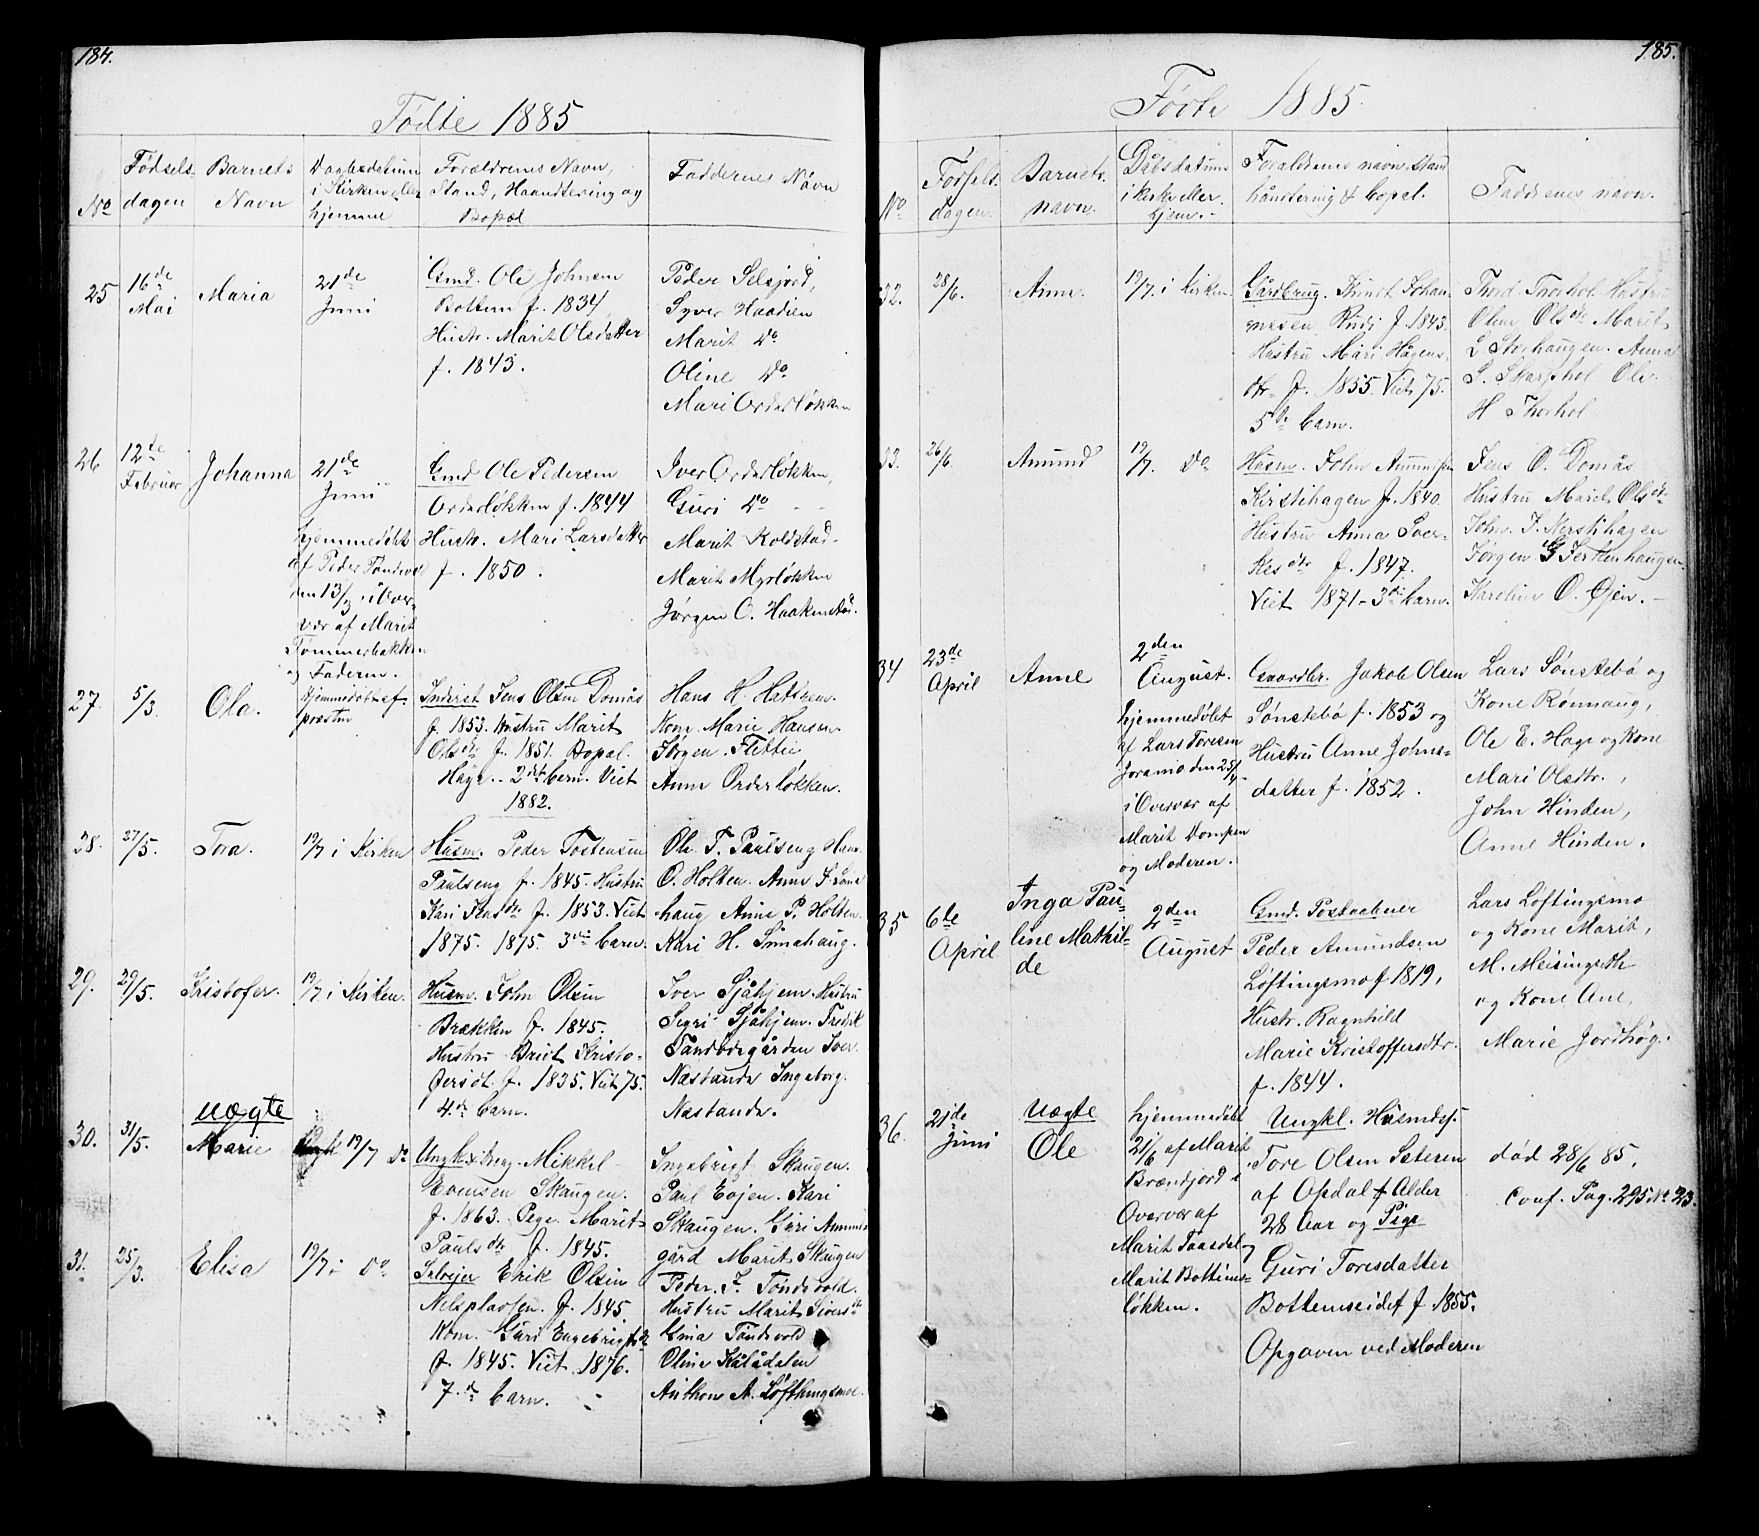 184.
Födte 1885
No
Födsels-
dagen
Barnets
Navn
Daabsdatum
i Kirken eller
hjemme
Forældrenes Navn,
Stand, Haandtering og
Bopæl
Faddernes Navn
25
16de
Mai
Maria
21de
Juni
Gmd. Ole Johnsen
Bottem f. 1834,
Hustr. Marit Olsdatter
f. 1843.
Peder Selsjord,
Syver Haadien
Marit Do
Oline Do
Mari Orderløkken
26
12te
Februar
Johanna
21de
Juni
hjemmedøbt
af Peder Tøndevold
den 13/3 i Over-
vær af Marit
Tømmerbakken
og Faderen.
Gmd Ole Pedersen
Orderløkken f. 1844
Hustr. Mari Larsdatter
f. 1850.
Iver Orderløkken,
Guri Do
Marit Koldstad
Marit Myrløkken
Jørgen O. Haakenstad.
27.
5/3.
Ola.
Hjemmedöbt af
præsten
Inderst Jens Olsen Domås
f. 1853. Hustru Marit
Olsdtr f. 1851. Bopæl.
Hage. 2det barn. Viet
1882.
Hans H. Hatsven.
Kone Marie Hansen.
Jörgen Flittie
Anne Orderløkken.
28.
27/5.
Tora.
19/7 i Kirken
Husm. Peder Tostensen
Paulseng f. 1845. Hustru
Kari Hasdtr f. 1853. Viet
1875. 1875. 3die barn.
Ole T. Paulseng Hans
O. Holten. Anne
haug Anne P. Holten
Kari H. Sinnahaug.
29.
29/5.
Kristofer.
19/7 i Kirken.
Husm. John Olsen
Brækken f. 1845.
Hustru Brit Kristo-
fersdt. f. 1835. Viet 75.
4.de barn.
Iver Sjåhjem Hustru
Sigri Sjåhjem. Fredrik
Tandbergården Iver
Næstande Ingeborg
Næstande.
30.
31/5.
uægte
Marie
19/7 Do
Ungk. Mikkel
Evensen Skaugen.
f. 1863. Pige Marit
Paulsdtr f. 1845.
Ingebrigt Skaugen.
Paul Eojen. Kari
Skaugen. Guri Ammun
gård Marit Skaugen
31.
25/3.
Elisa
19/7 i Do
Selveier Erik Olsen
Nelsplassen. f. 1845.
Kone. Guri Engebrigtsdtr
f. 1845. Viet 1876.
7.de barn.
Peder. J. Tøndevold.
Hustru Marit Siversdtr
Tøndevold
Oline Kålådalen
Anthon A. Løfthingsmoe.
185.
Föde 1885.
No
Fødsels-
dagen.
Barnets
navn.
Dåbsdatum
i kirke eller
hjem.
Forældrenes navn, stand
håndtering & bopæl.
Faddrenes navn.
32.
28/6.
Anne.
19/7. i Kirken.
Gårdbrug. Knut Johan-
nesen Rudj f. 1843.
Hustru Mari Hågens-
dtr f. 1855. Viet 75.
5te barn.
Thord Thorhol Hustru
Oline Olsdtr Marit
L Storhaugen. Anna
S. Skarphol Ole
H Thorhol
33.
26/6.
Amund
19/7. Do
Husm. John Ammunsen
Kirstihagen f. 1840.
Hustru Anna Sver-
kesdtr f. 1847.
Viet 1871 - 3die barn.
Jens O. Domås
Hustru Marit Olsdtr
John J. Kerstihagen
Jørgen G Jerkenhaugen
Karoline O. Øjen.
34
23de
April
Anne
2den
August.
hjemmedøbt
af Lars Toresen
Joramo den 25/4
i Overvær af
Marit Dompen
og Moderen.
Gaardbr. Jakob Olsen
Sønstebø f. 1853 og
Hustru Anne Johns-
datter f. 1852.
Lars Sønstebø og
Kone Rønnaug,
Ole E. Hage og Kone
Mari Olsdtr.,
John Hinden,
Anne Hinden.
35
6te
April
Inga Pau-
line Mathil-
de
2den
August
Gmd. Postaabner
Peder Amundsen
Løftingsmo f 1819,
Hustr. Ragnhild
Marie Kristoffersdtr.
f. 1844.
Lars Løftingsmo
og Kone Marit,
M. Meisingseth
og Kone Ane,
Marie Jordhøg.
36.
21de
Juni
uægte
Ole
hjemmedøbt
21/6 af Marit
Brændjord i
Overvær af
Marit Taasdal og
Marit Bottems-
løkken.
Ungkl. Husmdsf.
Tore Olsen Sæteren
af Opdal f Alder
28 Aar og Pige
Guri Toresdatter
Bottemseidet f 1855.
Opgaven ved Moderen
død 28/6 85.
Conf. Pag. 295 No 23.